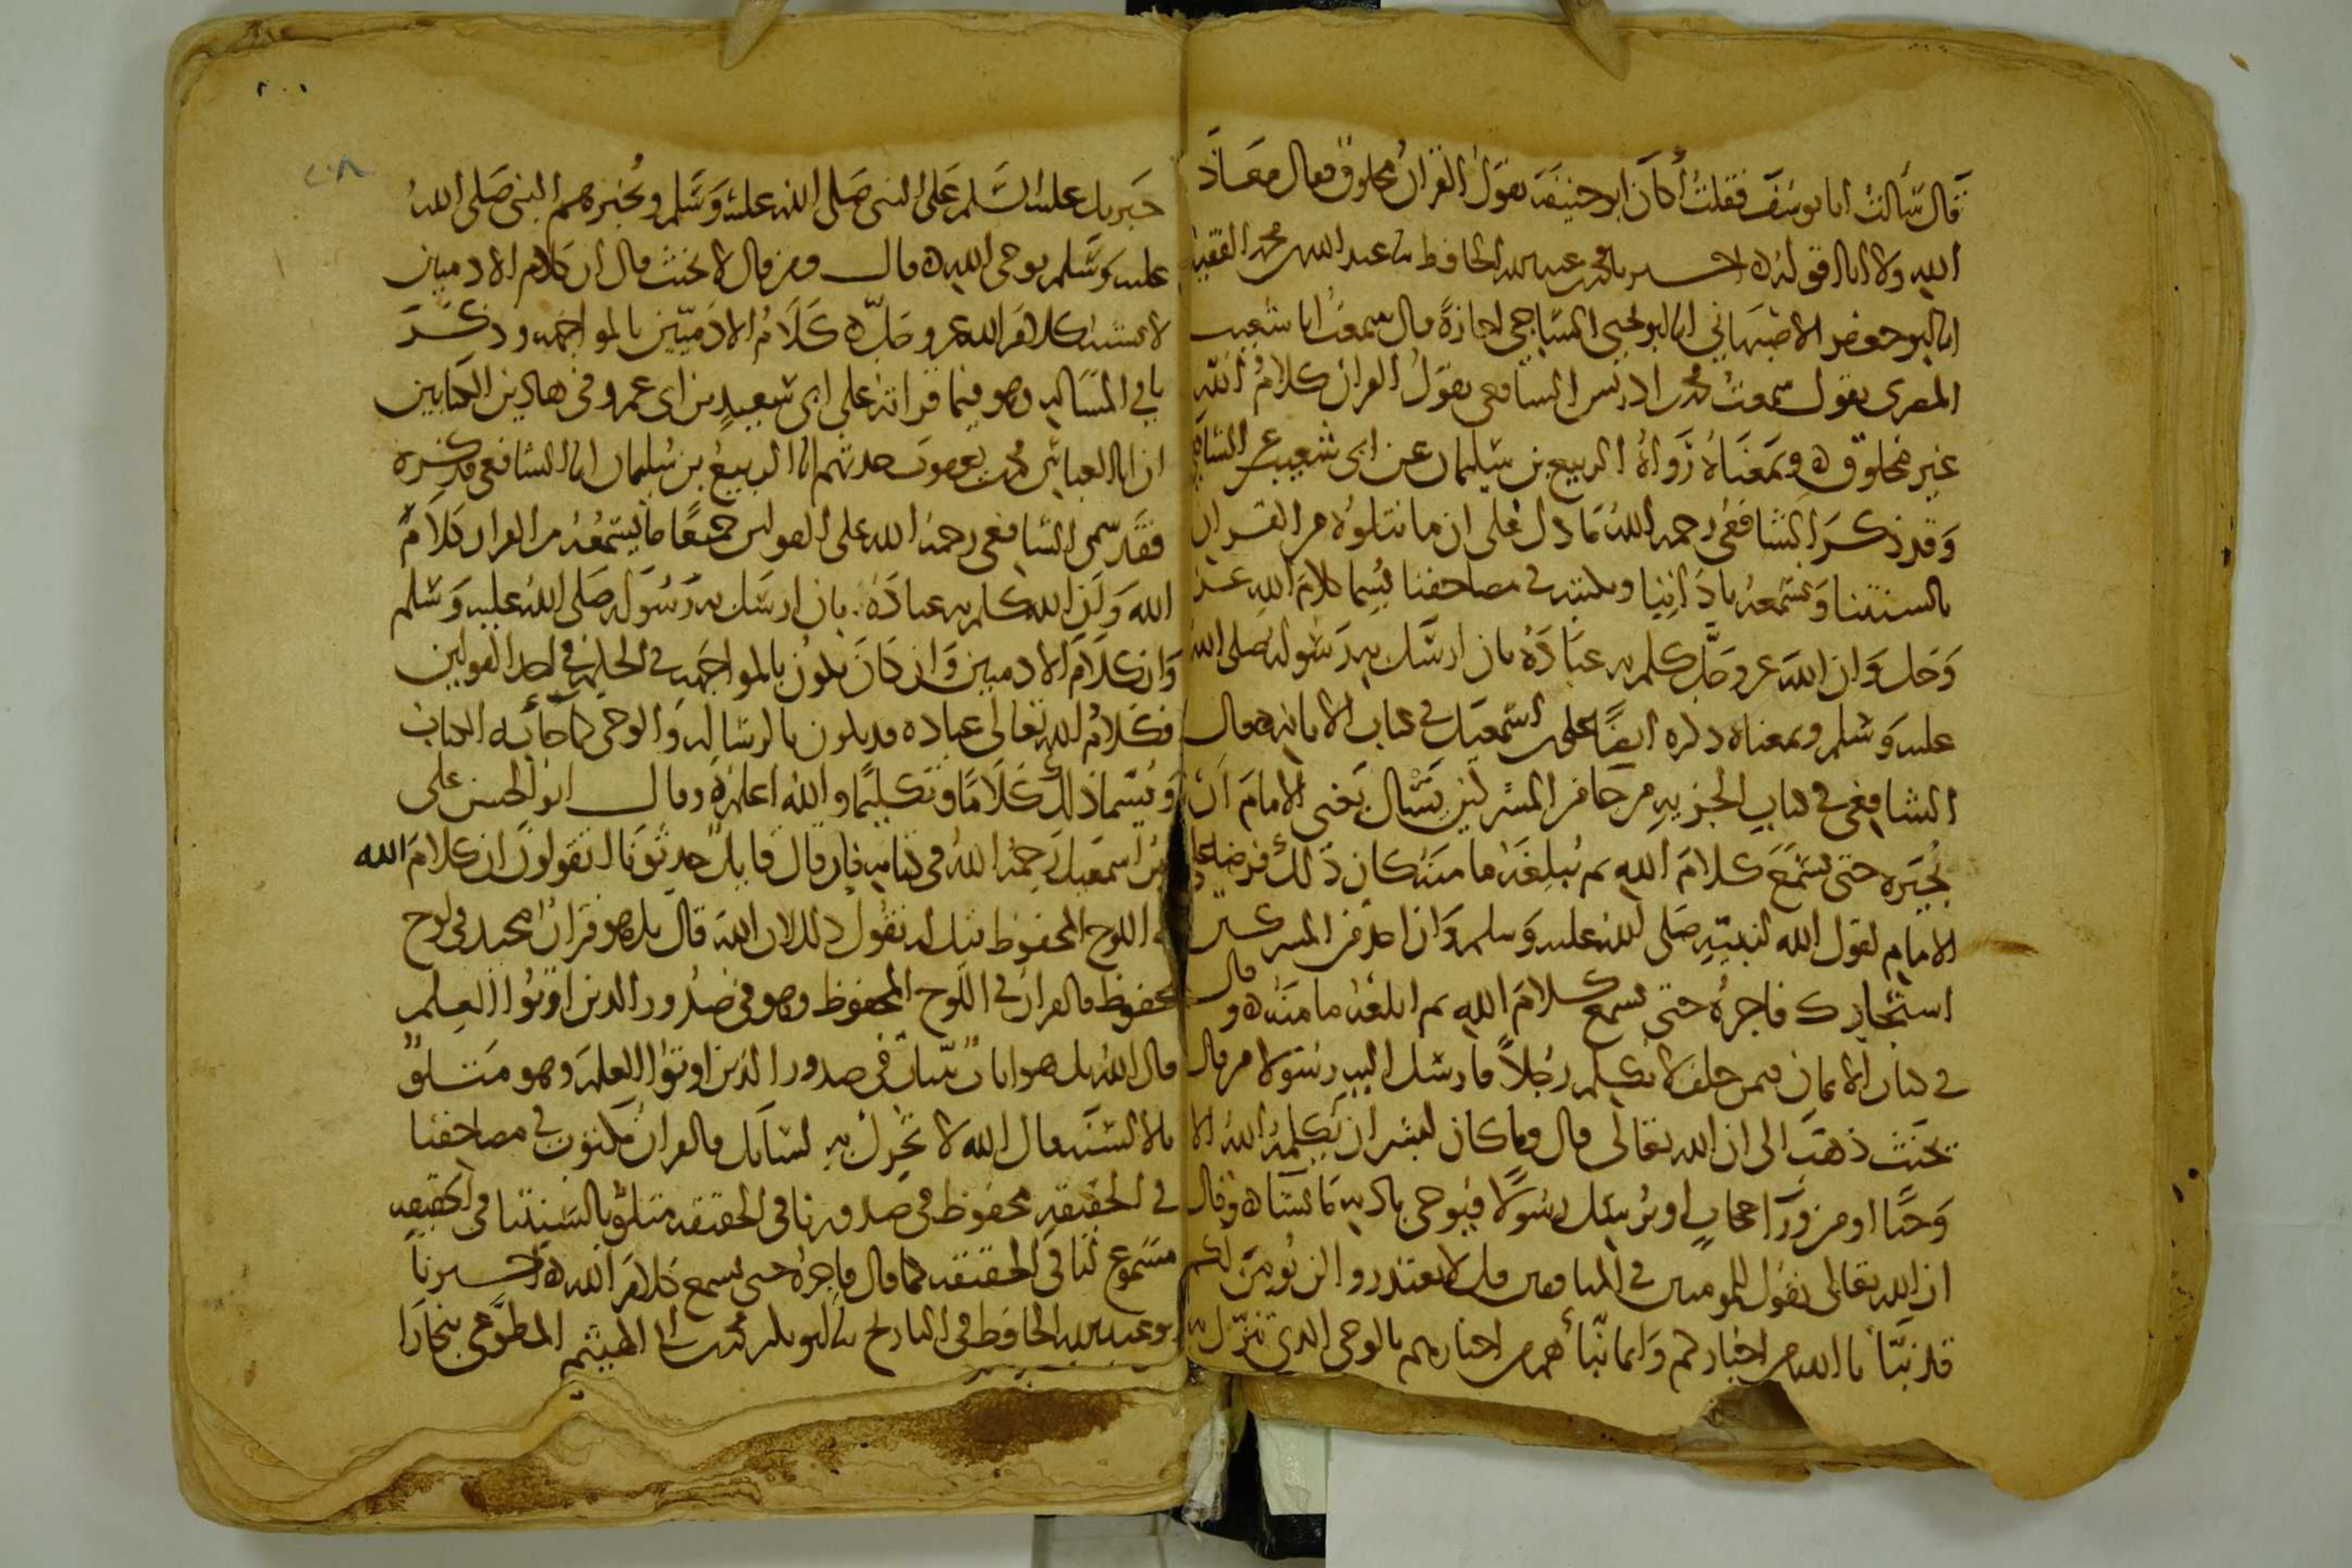 قال سألت ابا يوسف فقلت أكان ابو حنيفة يقول القران مخلوق فقال معاذ
الله ولا انا اقوله اخبرنا محمد بن عبد الله الحافظ ثنا عبد الله بن محمد الفقيه
انا ابو جعفر الاصبهاني انا ابو يحيى الساجي اجازة قال سمعت ابا شعيب
المصري يقول سمعت محمد بن ادريس الشافعي يقول القران كلام الله
غير مخلوق وبمعناه رواه الربيع بن سليمان عن ابي شعيب عن الشافعي
وقد ذكر الشافعي رحمه الله ما دل على ان ما نتلوه من القران
بالسنتنا ونسمعه باذاننا ونكتبه في مصاحفنا يسما كلام الله عز
وجل وان الله عز وجل كلم به عباده بان ارسل به رسوله صلى الله
عليه وسلم وبمعناه ذكره ايضا علي بن اسمعيل في كتاب الابانة وقال
الشافعي في كتاب الجزية من جا من المشركين يسال يعني الامام ان
يجيره حتى يسمع كلام الله ثم يبلغه مامنه كان ذلك فرضا على
الامام لقول الله لنبيه صلى الله عليه وسلم وان احد من المشركين
استجارك فاجره حتى يسمع كلام الله ثم ابلغه مامنه وقال
في كتاب الايمان فمن حلف لا يكلم رجلا فارسل اليه رسولا من قال
يحنث ذهب الى ان الله تعالى قال وما كان لبشر ان يكلمه الله الا
وحيا او من ورآ حجاب او يرسل رسولا فيوحي باذنه ما يشآ وقال
ان الله تعالى يقول للمومنين في المنافقين قل لا تعتذروا لن نومن لكم
قد نبأنا الله من اخباركم وانما نبأهم من اخبارهم بالوحي الذي تنزل به
جبريل عليه السلم على النبي صلى الله عليه وسلم ويخبرهم النبي صلى الله
عليه وسلم بوحي الله قال ومن قال لا يحنث قال ان كلام الادميين
لا يشبه كلام الله عز وجل كلام الادميين بالمواجهة وذكر
باقي المسالة وهو فيما قراته على ابي سعيد بن ابي عمرو في هاذين الكتابين
ان ابا العباس محمد بن يعقوب حدثهم انا الربيع بن سليمان انا الشافعي فذكره
فقد سمى الشافعي رحمه الله على القولين جميعا ما نسمعه من القران كلام
الله وان الله كلم به عباده بان ارسل به رسوله صلى الله عليه وسلم
وان كلام الادميين وان كان يكون بالمواجهة في الحكم في احد القولين
فكلام الله تعالى عباده قد يكون بالرسالة والوحي كما جآ به الكتاب
ويسما ذلك كلاما وتكليما والله اعلم وقال ابو الحسن علي
بن اسمعيل رحمه الله في كتابه فان قال قايل حدثونا اتقولون ان كلام الله
في اللوح المحفوظ قيل له نقول ذلك لان الله قال بل هو قران مجيد في لوح
محفوظ فالقران في اللوح المحفوظ وهو في صدور الذين اوتوا العلم
قال الله بل هو ايات بينات في صدور الذين اوتوا العلم وهو متلو
بالالسنة قال الله لا تحرك به لسانك فالقران مكتوب في مصاحفنا
في الحقيقة محفوظ في صدورنا في الحقيقة متلو بالسنتنا في الحقيقة
مسموع لنا في الحقيقة كما قال فاجره حتى يسمع كلام الله اخبرنا
ابو عبد الله الحافظ في التاريخ ثنا ابو بكر محمد بن ابي الهيثم المطوعي ببخارا